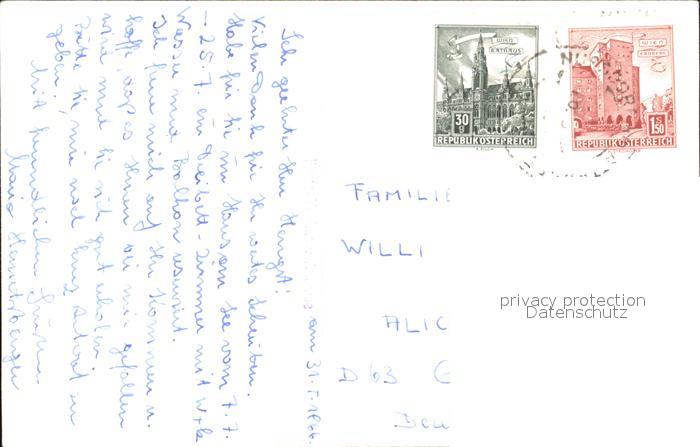 am 31.I.1966.
Sehr geehrter Herr Hengst!
Vielen Dank für Ihr wertes Schreiben.
Habe für Sie im Haus am See vom 7.7.
- 25.7 ein Dreibett-Zimmer mit
Wasser und Balkon reserviert.
Ich freue mich auf Ihr Kommen u.
hoffe, dass es Ihnen bei mir gefallen
wird und Sie sich gut erholen.
Bitte Sie, mir noch kurz Antwort zu
geben.
Mit freundlichen Grüßen
Maria
WIEN
RATHAUS
30 g
REPUBLIK ÖSTERREICH
WIEN
ERDBERG
1.50
REPUBLIK ÖSTERREICH
FAMILIE
WILLI
ALIC
D 63 G
privacy protection
Datenschutz